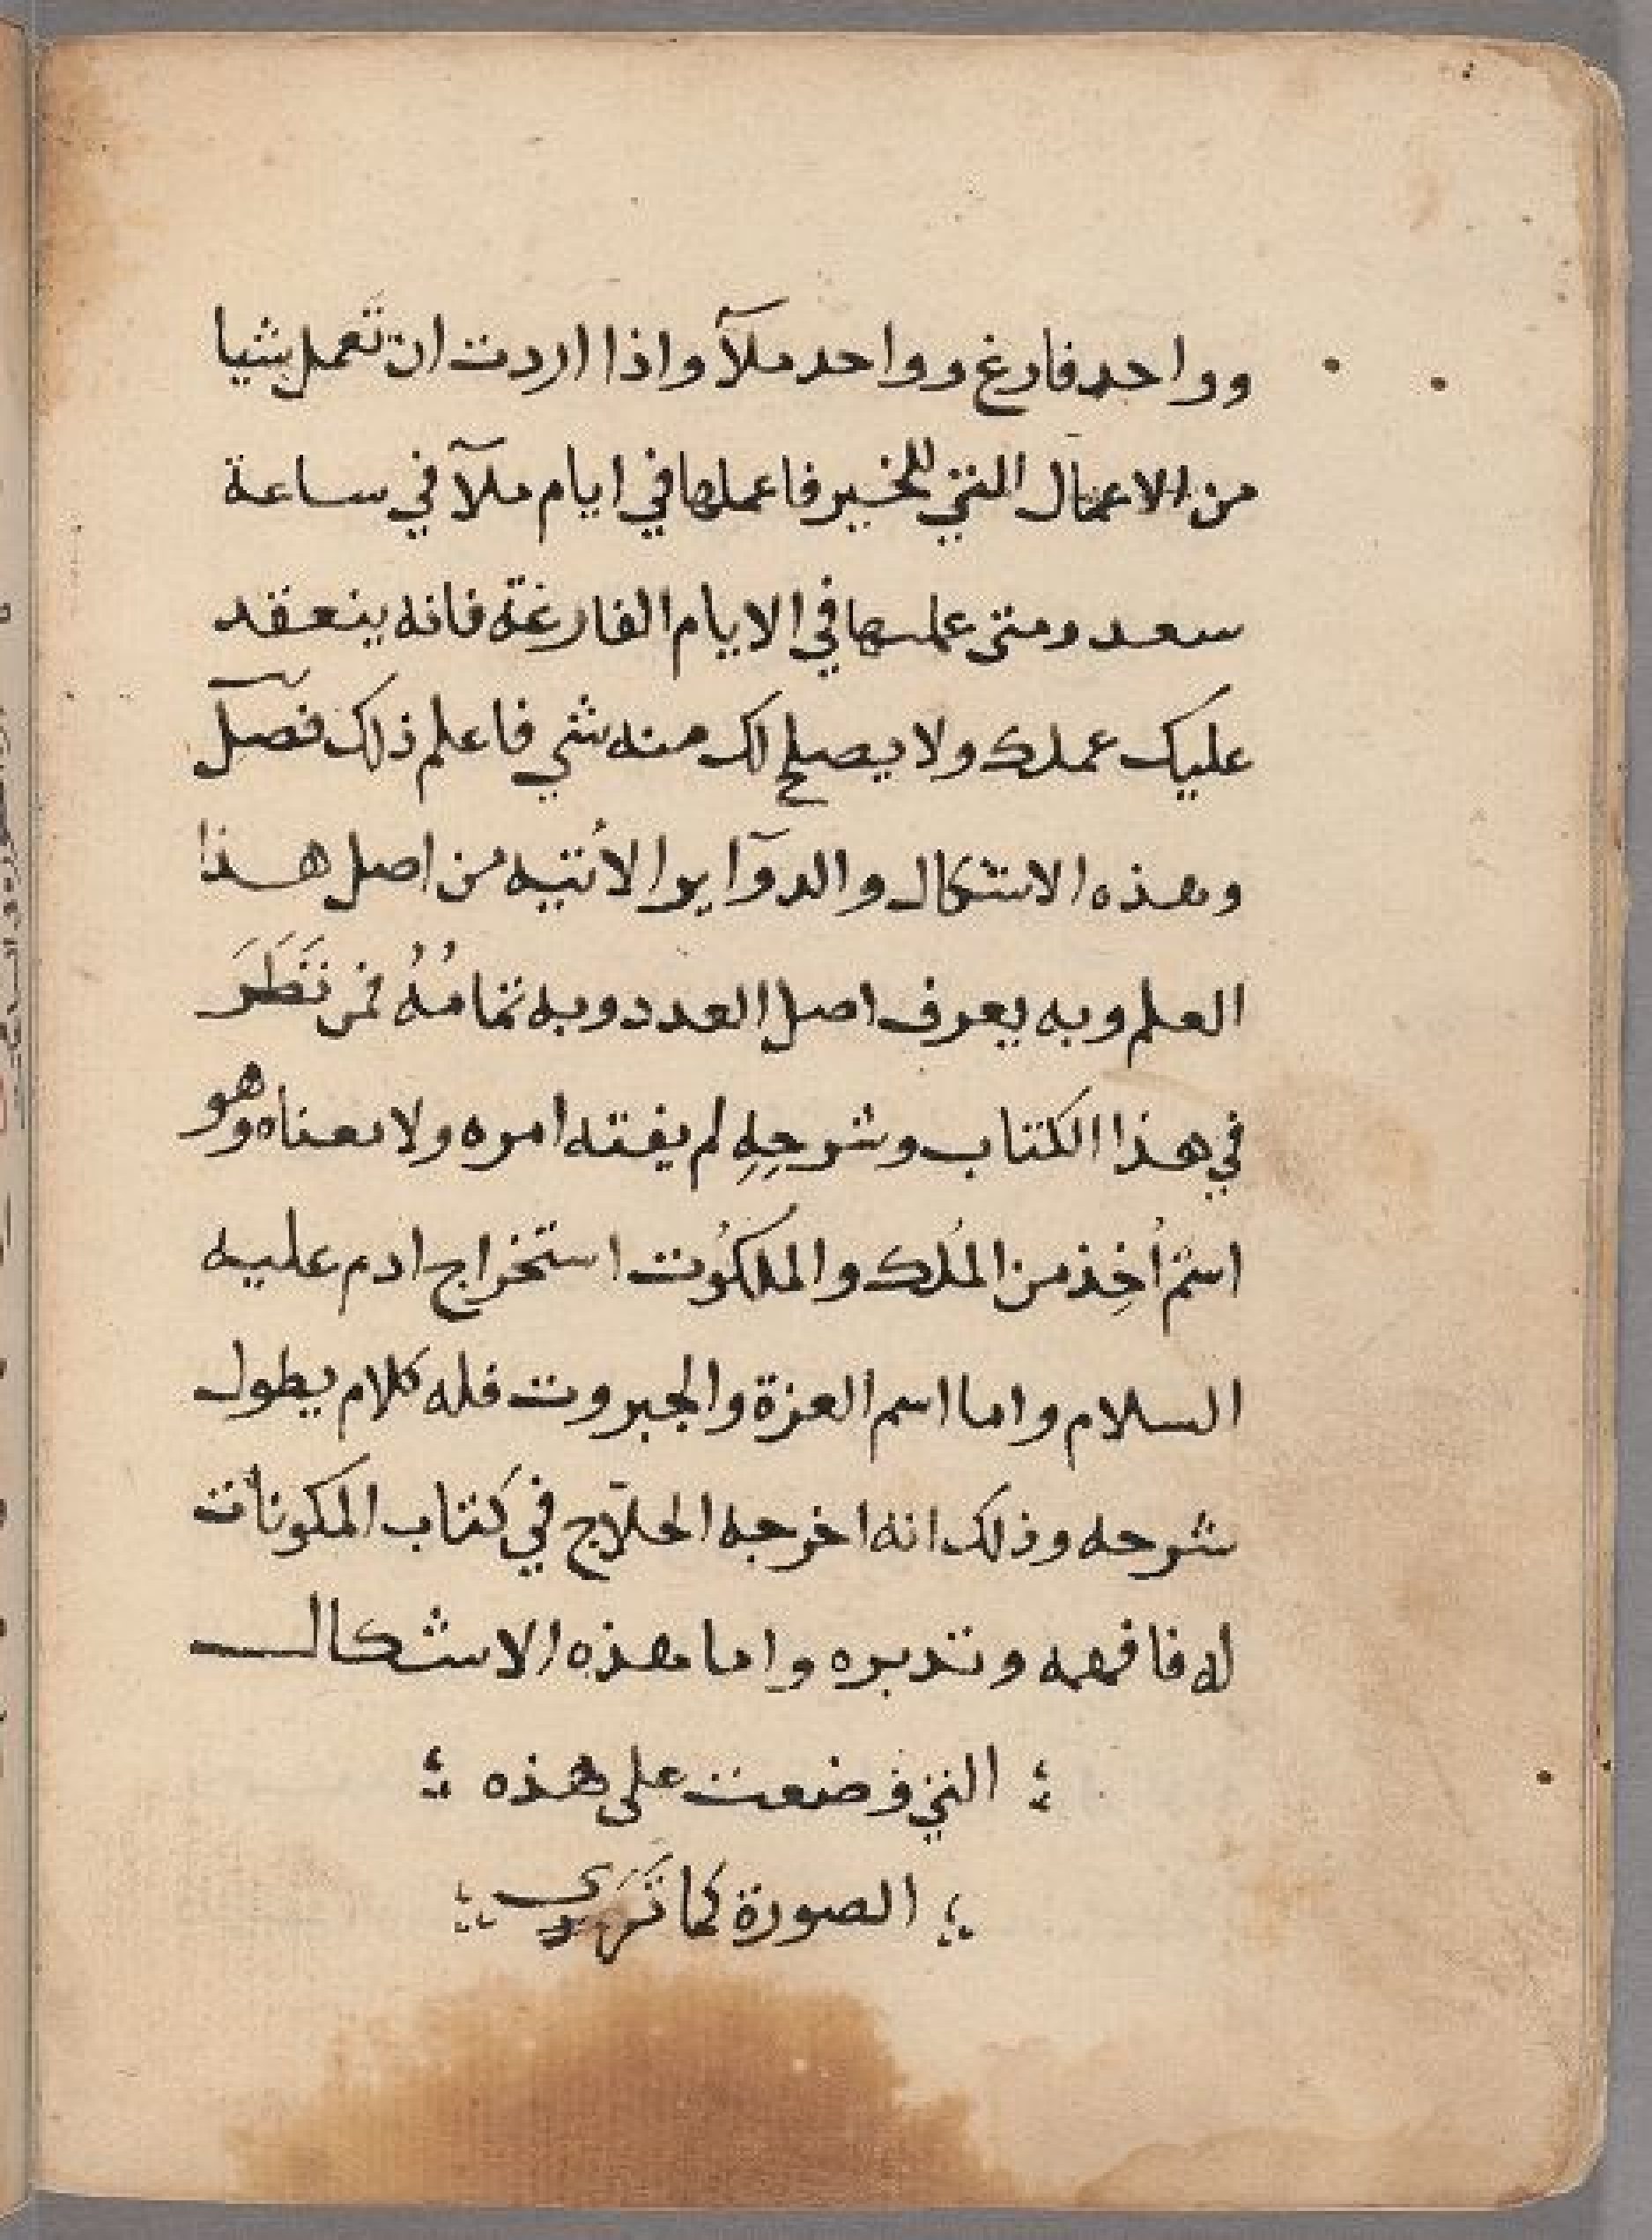 وواحد فارغ وواحد ملآ واذا اردت ان تَعمل شيا
من الاعمال التي للخير فاعملها في ايام ملآ في ساعة
سعد ومتى عملتها في الايام الفارغة فانه ينعقد
عليك عملك ولا يصلح لك منه شي فاعلم ذلك فصل
وهذه الاشكال والدوآير الاُتيه من اصل هذا
العلم وبه يعرف اصل العدد وبه تمامُهُ فمن نَظَرَ
في هذا الكتاب وشرحِهِ لم يفته امره ولا معناه وهو
اسمٌ اُخِذ من المُلك والملكُوت استخراج ادم عليه
السلام واما اسم العزة والجبروت فله كلام يطول
شرحه وذلك انه اخرجه الحلّاج في كتاب المكونات
له فافهمه وتدبره واما هذه الاشكال
التي وُضعت على هذه
الصورة كما تَرَى